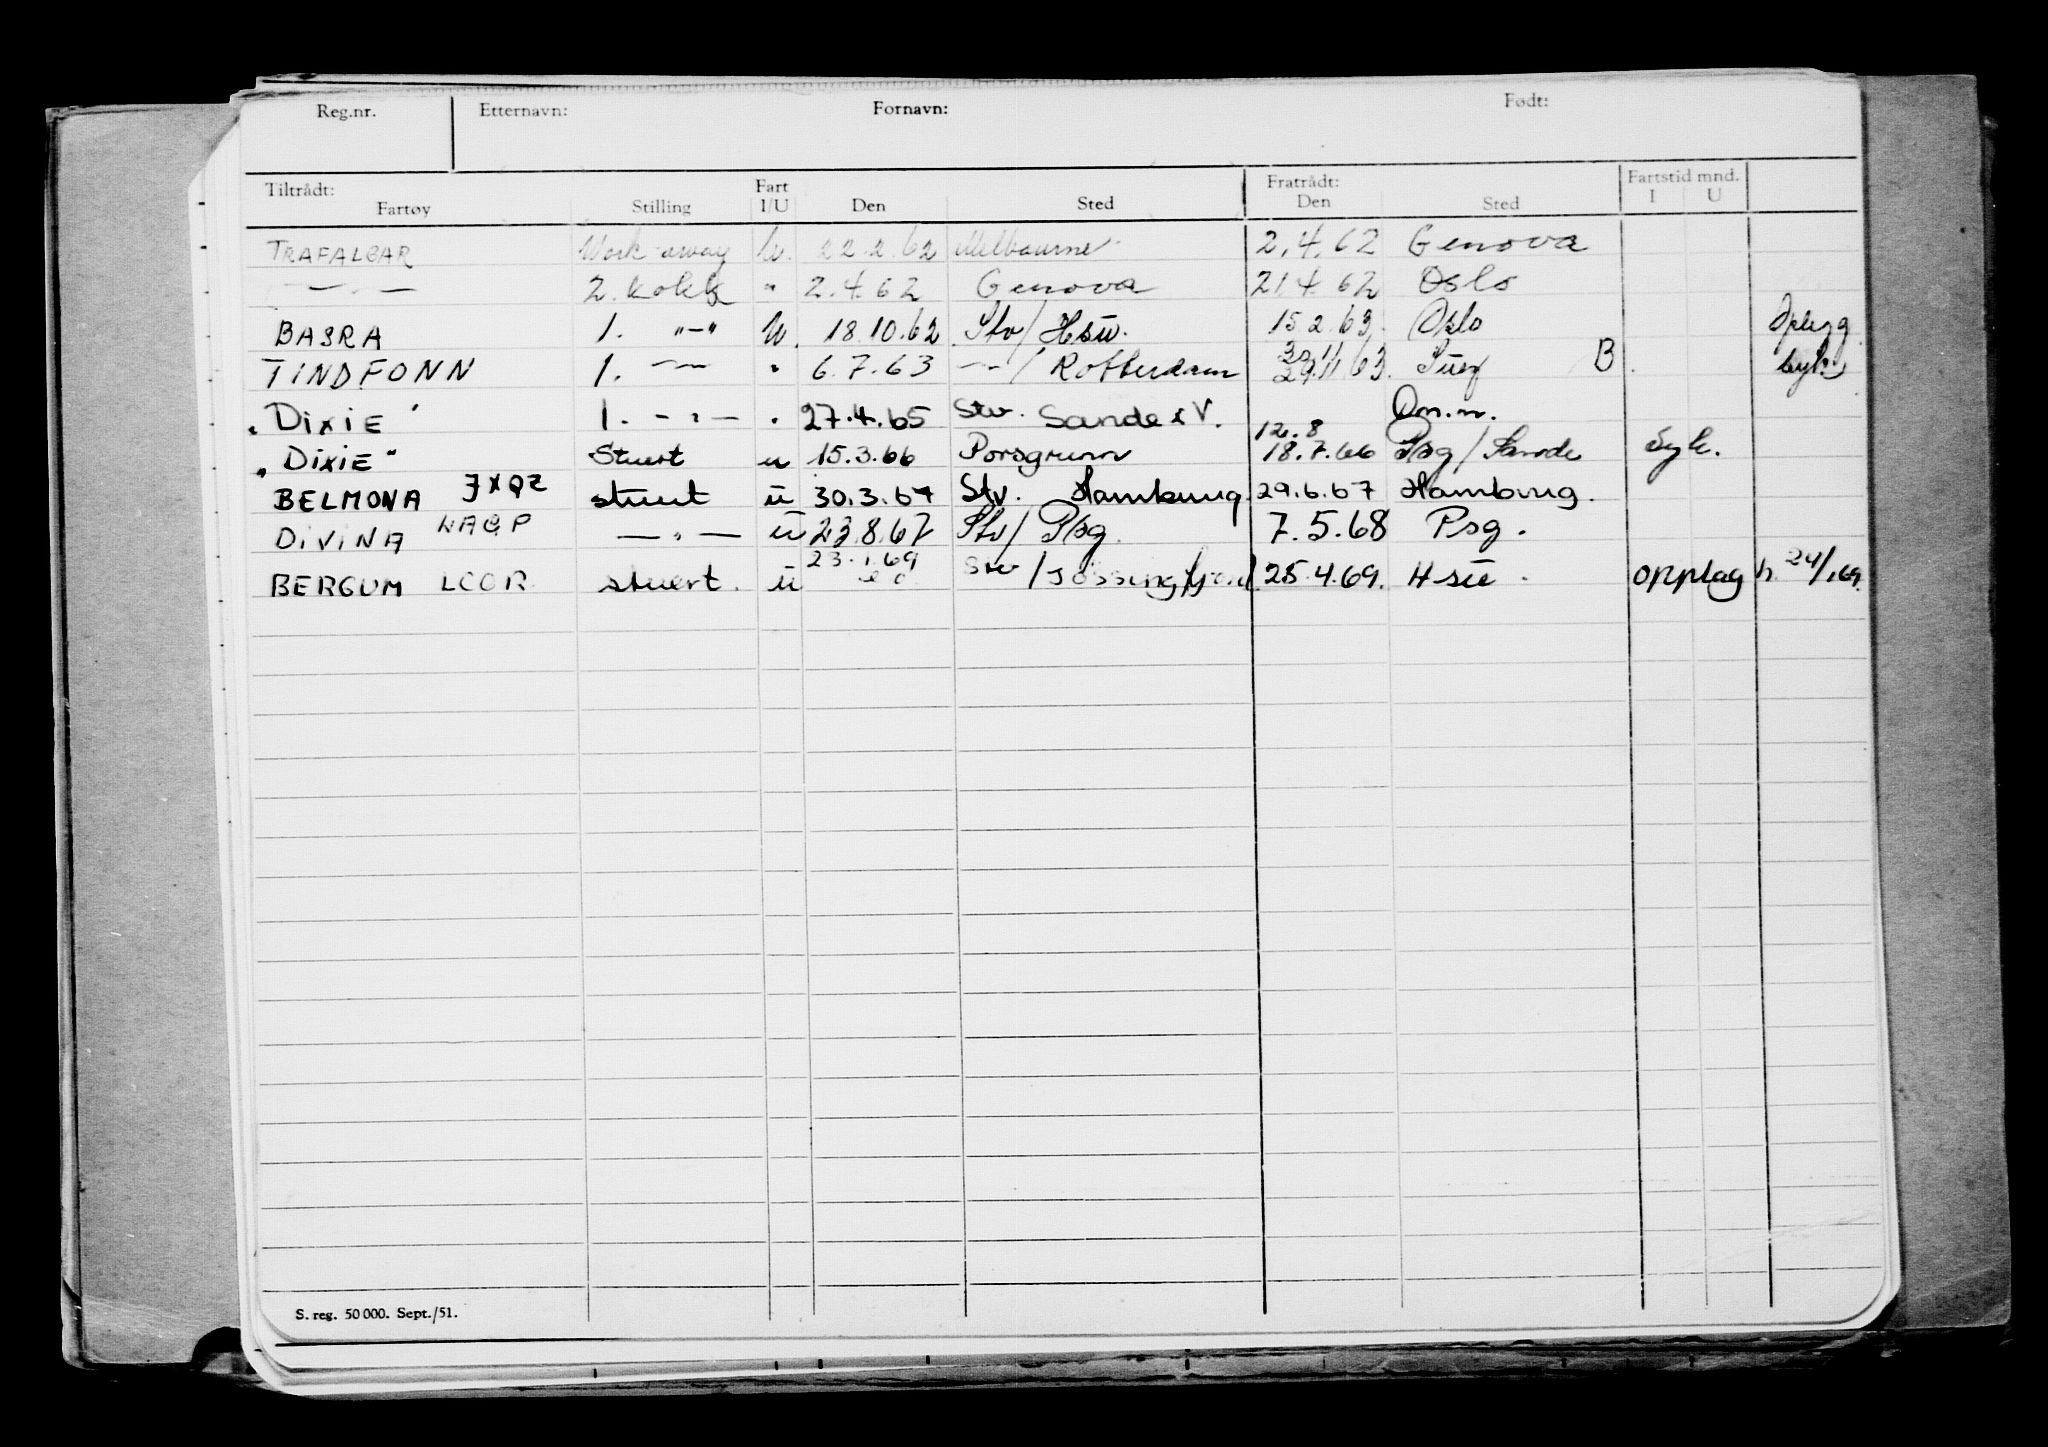 Reg.nr. Etternavn: Fornavn: Født:
Tiltrådt: Fart Fratrådt: Fartstid mnd.
Fartøy Stilling I/U Den Sted Den Sted I U
TRAFALGAR Work-away U. 22.2.62 Melbourne 2.4.62 Genova
— " — 2. kokk " 2.4.62 Genova 21.4.62 Oslo
BASRA 1. "—" U. 18.10.62 Stv/Hsv. 15.2.63. Oslo
TINDFONN 1. —"— " 6.7.63 —"—/Rotterdam 29.11.63. Suez B syk.
"DIXIE" 1. - " - " 27.4.65 Stv. Sande i V. 12.8 On.m.
"DIXIE" Stuert u 15.3.66 Porsgrunn 18.7.66 Psg/Sande Syk.
BELMONA JXQZ stuert u 30.3.67 Stv. Hamburg 29.6.67 Hamburg.
DIVINA LAGP — " — u 23.8.67 Stv/Psg. 7.5.68 Psg.
BERGUM LCOR stuert. u 23.1.69 Stv/Jøssingfjord 25.4.69. Hsv. opplag h. 24/1.69.
S. reg. 50 000. Sept./51.